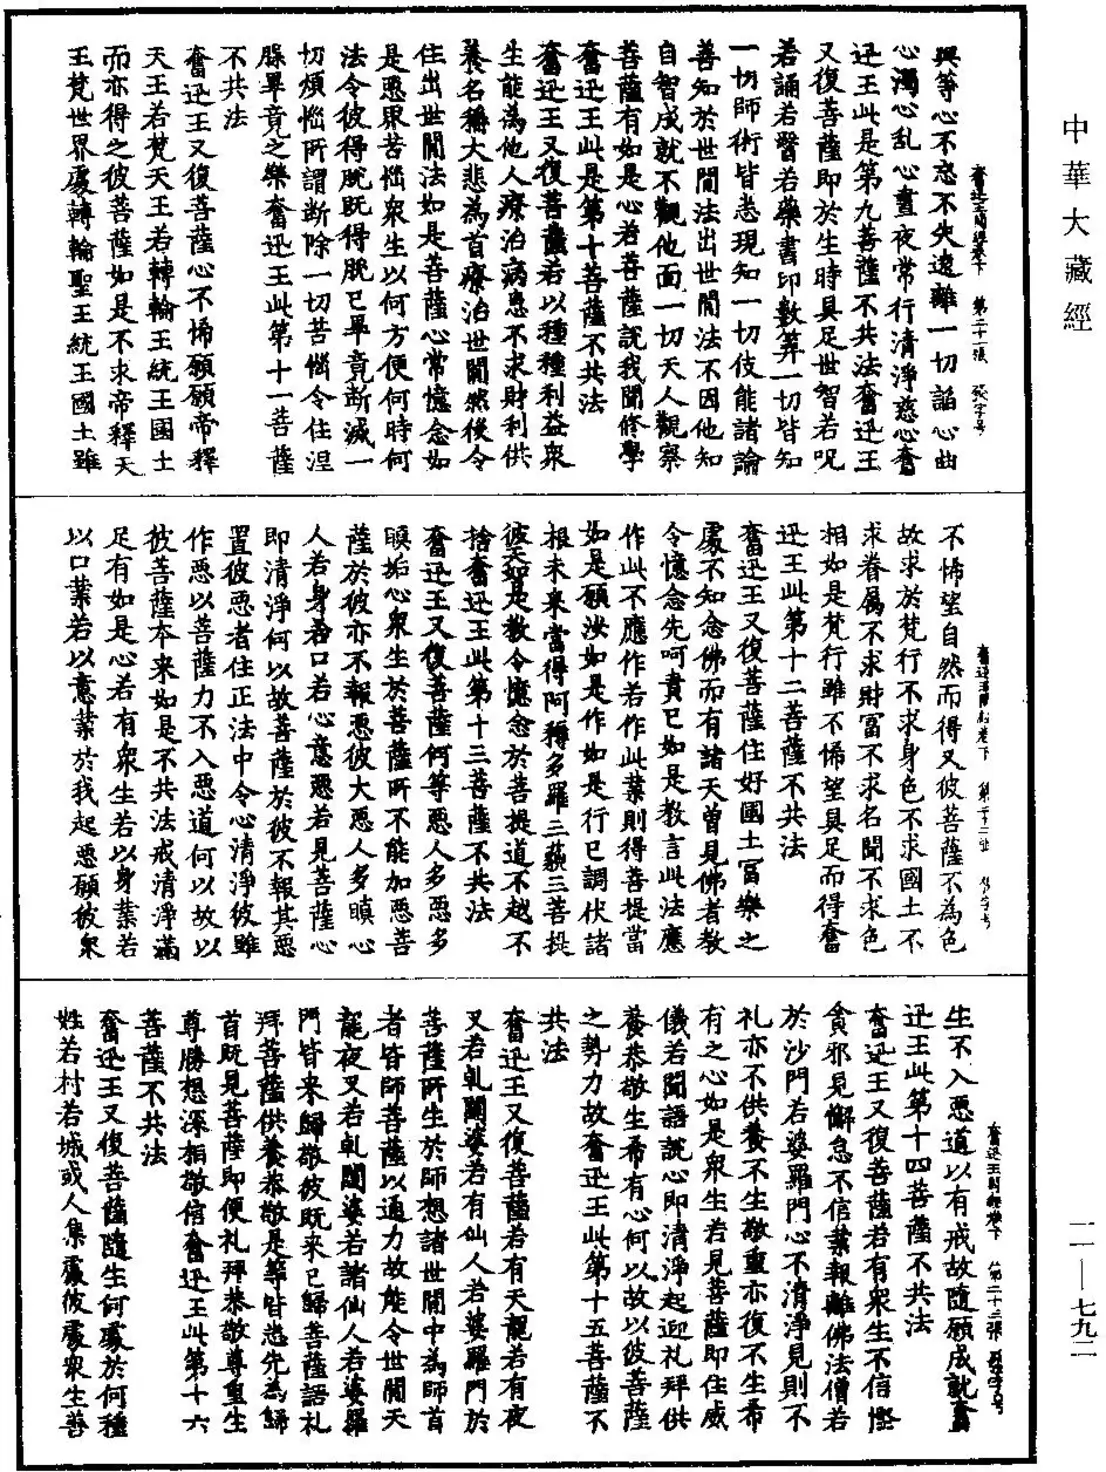 中華大藏經
奮迅王問經卷下　第二十一張　發字号
與等心不恣不失遠離一切諂心曲
心濁心乱心晝夜常行清淨慈心奮
迅王此是第九菩薩不共法奮迅王
又復菩薩即於生時具足世智若呪
若誦若醫若藥書印數筭一切皆知
一切師術皆悉現知一切伎能諸論
善知於世間法出世間法不因他知
自智成就不觀他面一切天人觀察
菩薩有如是心若菩薩說我聞修學
奮迅王此是第十菩薩不共法
奮迅王又復菩薩若以種種利益衆
生能為他人療治病患不求財利供
養名稱大悲為首療治世間然後令
住出世間法如是菩薩心常憶念如
是惡界苦惱衆生以何方便何時何
法令彼得脫既得脫已畢竟斷滅一
切煩惱所謂斷除一切苦惱令住涅
脲畢竟之樂奮迅王此第十一菩薩
不共法
奮迅王又復菩薩心不悕願願帝釋
天王若梵天王若轉輪王統王國土
而亦得之彼菩薩如是不求帝釋天
王梵世界處轉輪聖王統王國土雖
奮迅王問經卷下　第二十二張　發字号
不悕望自然而得又彼菩薩不為色
故求於梵行不求身色不求國土不
求眷属不求財富不求名聞不求色
相如是梵行雖不悕望具足而得奮
迅王此第十二菩薩不共法
奮迅王又復菩薩住好國土富樂之
處不知念佛而有諸天曾見佛者教
令憶念先呵責已如是教言此法應
作此不應作若作此業則得菩提當
如是願汝如是作如是行已調伏諸
根未來當得阿耨多羅三藐三菩提
彼天如是教令憶念於菩提道不越不
捨奮迅王此第十三菩薩不共法
奮迅王又復菩薩何等惡人多惡多
瞋垢心衆生於菩薩所不能加惡菩
薩於彼亦不報惡彼大惡人多瞋心
人若身若口若心意惡若見菩薩心
即清淨何以故菩薩於彼不報其惡
置彼惡者住正法中令心清淨彼雖
作惡以菩薩力不入惡道何以故以
彼菩薩本来如是不共法戒清淨滿
足有如是心若有衆生若以身業若
以口業若以意業於我起惡願彼衆
奮迅王問經卷下　第二十三張　發字号
生不入惡道以有戒故隨願成就奮
迅王此第十四菩薩不共法
奮迅王又復菩薩若有衆生不信慳
貪邪見懈怠不信業報離佛法僧若
於沙門若婆羅門心不清淨見則不
礼亦不供養不生敬重亦復不生希
有之心如是衆生若見菩薩即住威
儀若聞語說心即清淨起迎礼拜供
養恭敬生希有心何以故以彼菩薩
之勢力故奮迅王此第十五菩薩不
共法
奮迅王又復菩薩若有天龍若有夜
叉若乹闥婆若有仙人若婆羅門於
菩薩所生於師想諸世間中為師首
者皆師菩薩以通力故能令世間天
龍夜叉若乹闥婆若諸仙人若婆羅
門皆来歸敬彼既来已歸菩薩語礼
拜菩薩供養恭敬是等皆悉先為歸
首既見菩薩即便礼拜恭敬尊重生
尊勝想深相敬信奮迅王此第十六
菩薩不共法
奮迅王又復菩薩隨生何處於何種
姓若村若城或人集處彼處衆生善
一一—七九二